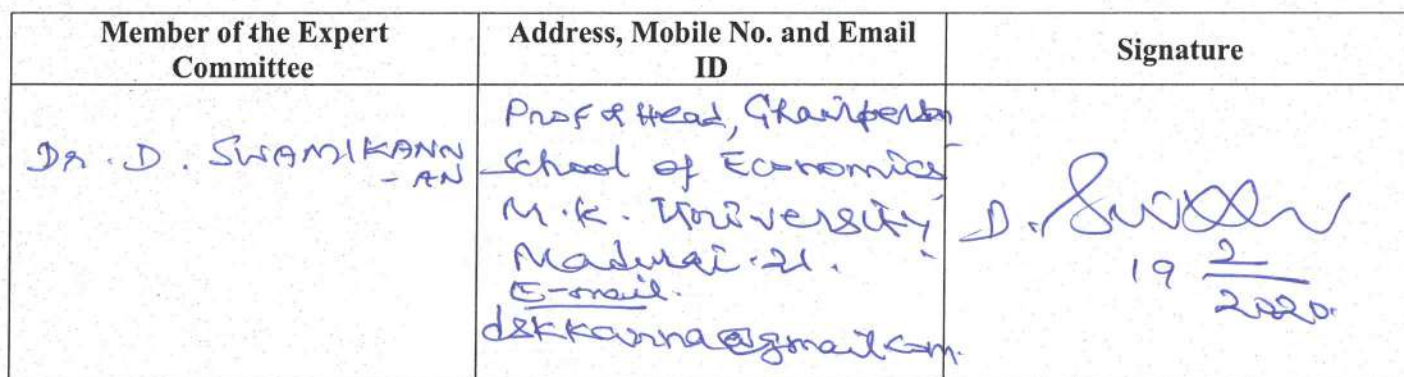 Member of the Expert Committee
Address, Mobile No. and Email ID
Signature
Dr. D. SWAMIKANN
- AN
Prof & Head, Chairperson
School of Economics
M.K. University
Madurai-21.
E-mail.
dskkanna@gmail.com.
D.
19 2/2020.